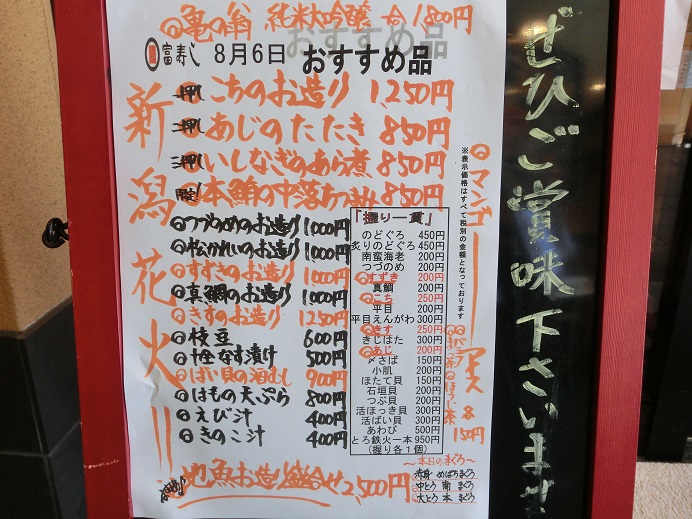 亀の翁 純米大吟醸 一合 1,800円
富寿し 8月6日 おすすめ品
新潟花火
一押し こちのお造り 1,250円
二押し あじのたたき 850円
三押し いしなぎのあら煮 850円
本鮪の中落ち 850円
つづのめのお造り 1000円
松かれいのお造り 1000円
すずきのお造り 1000円
真鯛のお造り 1000円
きすのお造り 1250円
枝豆 600円
十全なす漬け 500円
ばい貝の酒むし 900円
はもの天ぷら 800円
えび汁 400円
きのこ汁 400円
地魚お造り盛合せ 2,500円
「握り一貫」
のどぐろ 450円
炙りのどぐろ 450円
南蛮海老 200円
つづのめ 200円
すずき 200円
真鯛 200円
こち 250円
平目 200円
平目えんがわ 300円
きす 250円
きじはた 300円
あじ 200円
〆さば 150円
小肌 200円
ほたて貝 150円
石垣貝 200円
つぶ貝 200円
活ほっき貝 300円
活ばい貝 300円
あわび 500円
とろ鉄火一本 950円
(握り各1個)
※表示価格はすべて税別の金額となっております
マンゴーアイス
ほうじ茶
150円
～本日のまぐろ～
赤身 めばちまぐろ
中とろ 南まぐろ
大とろ 本まぐろ
ぜひご賞味下さいませ